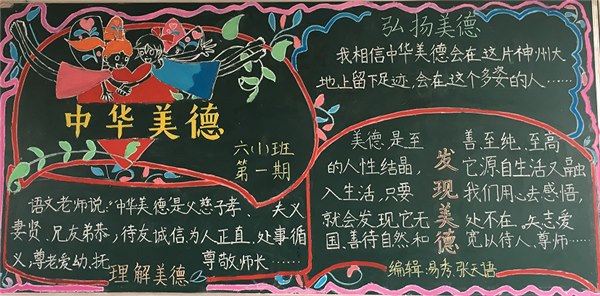 中华美德
六(1)班
第一期
语文老师说:“中华美德是父慈子孝、夫义
妻贤、兄友弟恭;待友诚信、为人正直、处事循
义,尊老爱幼、抚
尊敬师长……
理解美德
弘扬美德
我相信中华美德会在这片神州大
地上留下足迹,会在这个多姿的人……
美德是至善至纯、至高
的人性结晶,它源自生活又融
入生活,只要我们用心去感悟,
就会发现,它无处不在,矢志爱
国、善待自然和宽以待人、尊师……
发现美德
编辑:易秀、张天语